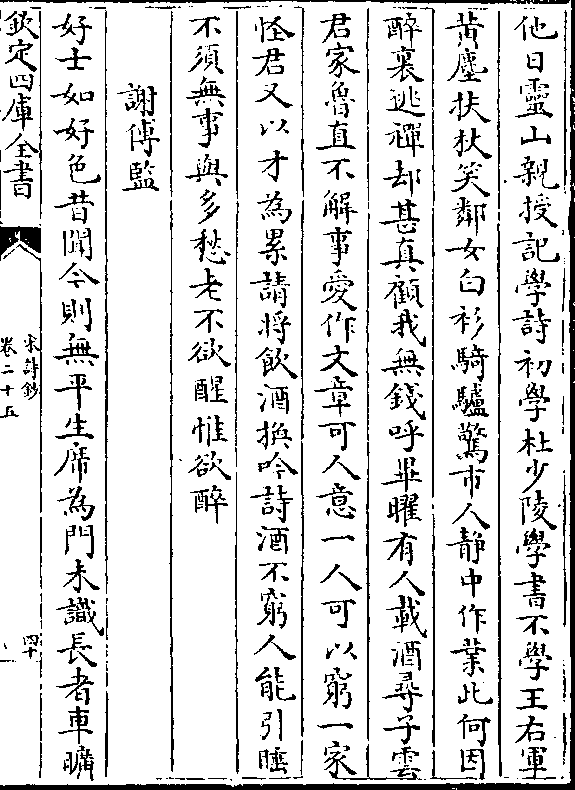 他日靈山親授記學詩初學杜少陵學書不學王右軍
黄塵扶杖笑鄰女白衫騎驢驚市人静中作業此何因
醉裏逃禪却甚真顧我無錢呼畢曜有人載酒尋子雲
君家魯直不解事愛作文章可人意一人可以窮一家
怪君又以才為累請將飲酒換吟詩酒不窮人能引睡
不須無事與多愁老不欲醒惟欲醉
謝傅監
好士如好色昔聞今則無平生席為門未識長者車曠
欽定四庫全書
宋詩鈔
卷二十五
四十